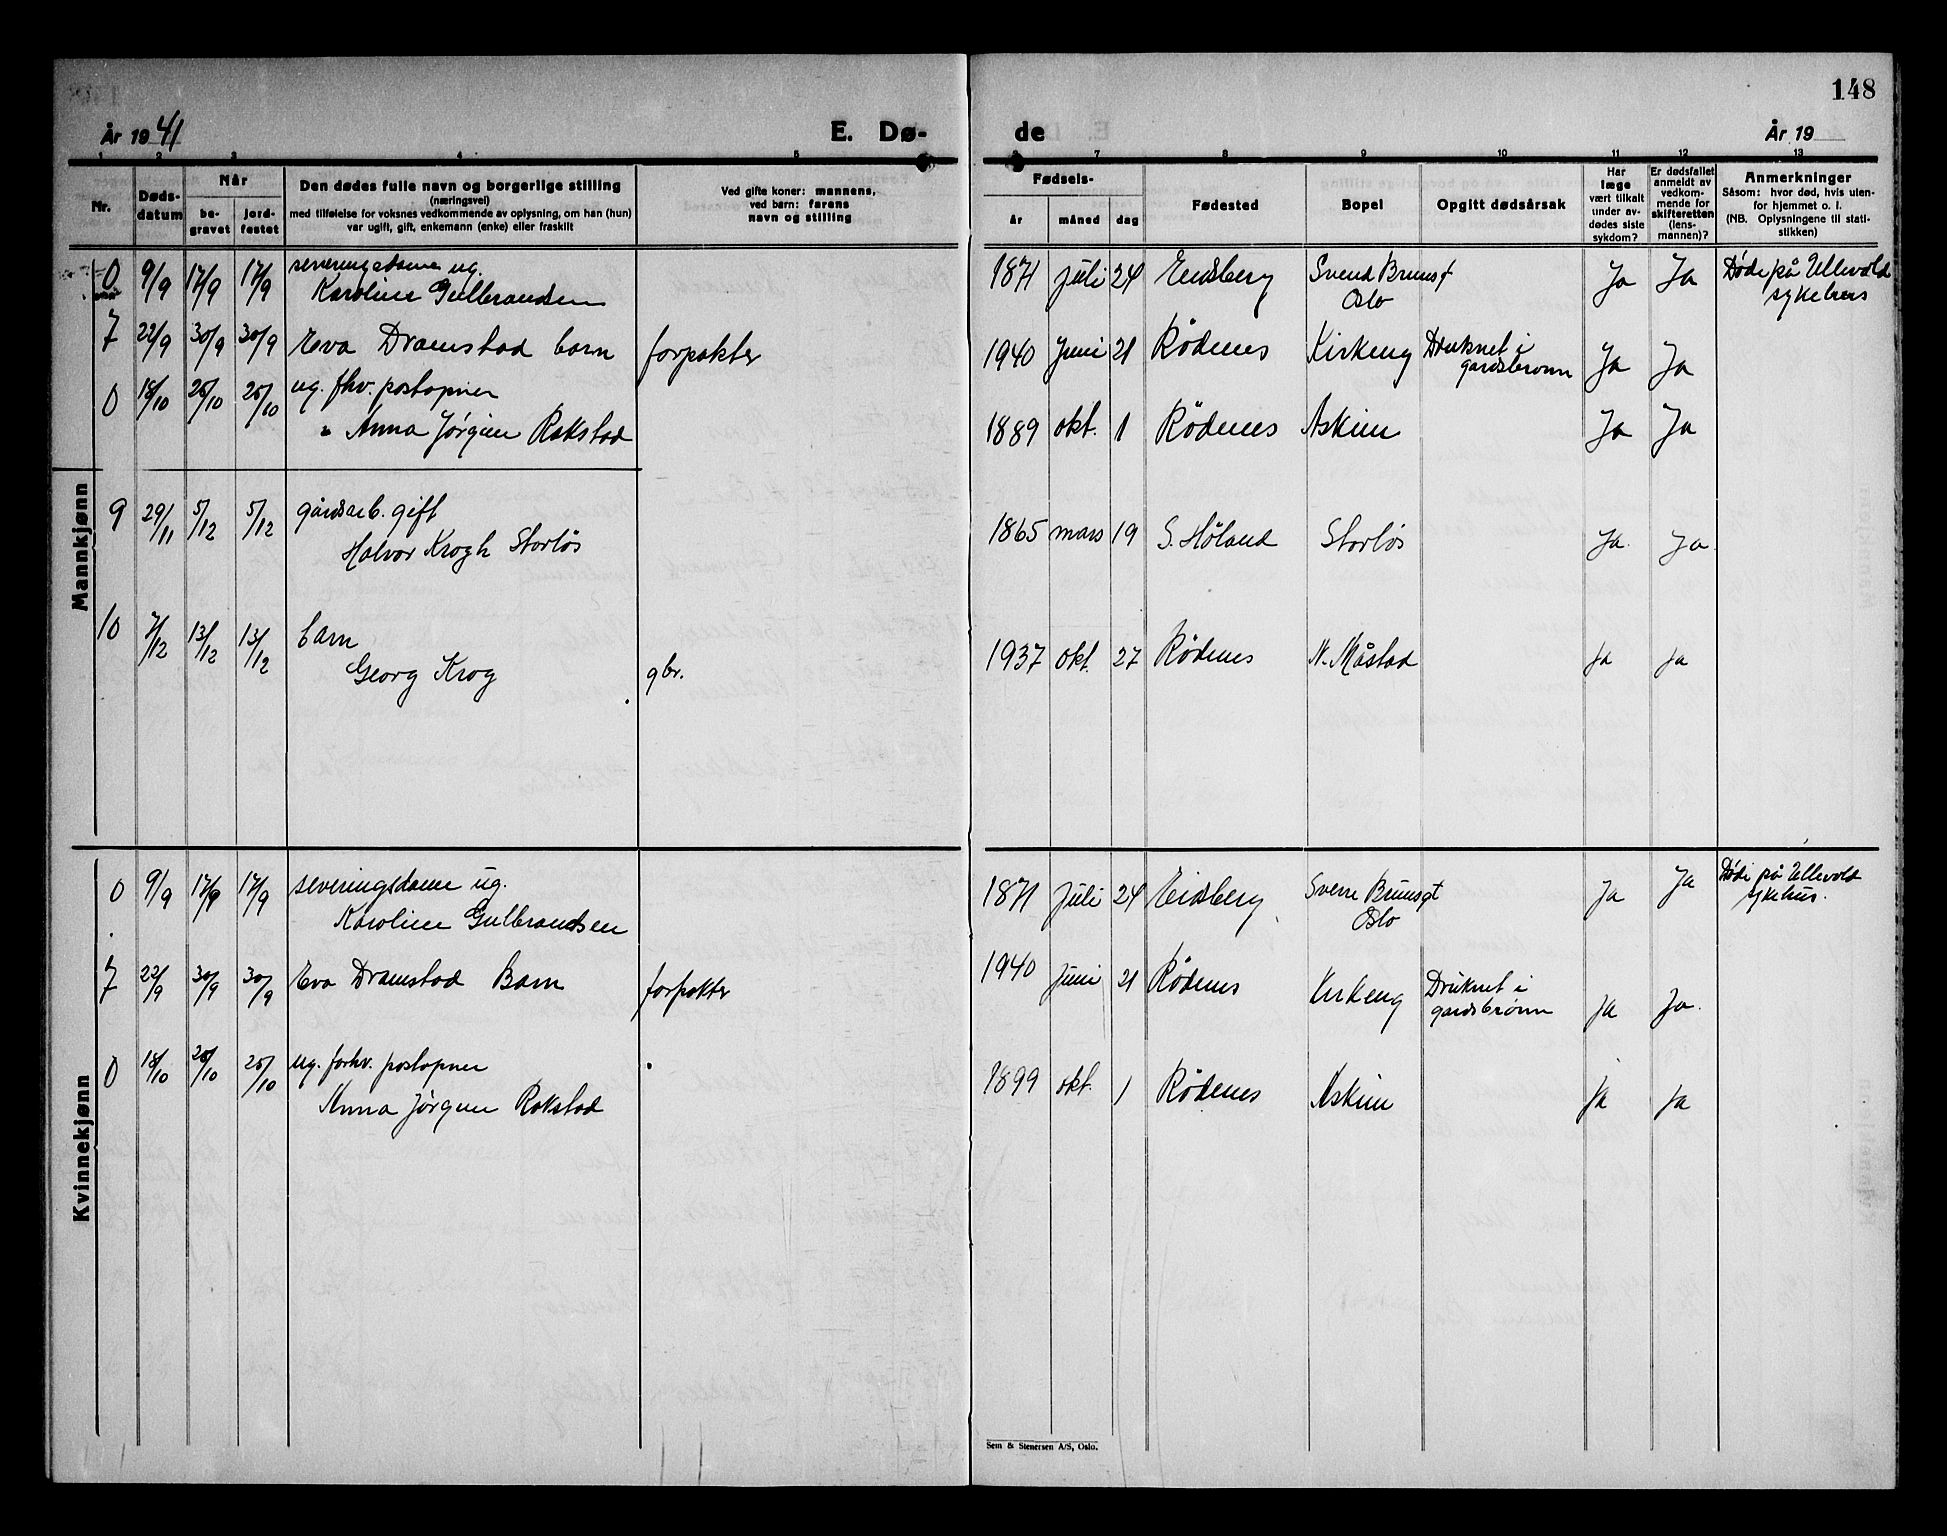 148
År 1941
E. Dø-
de
År 19
1 2 3 4 5 7 8 9 10 11 12 13
Nr.
Døds-
datum
Når
be-
gravet
jord-
festet
Den dødes fulle navn og borgerlige stilling
(næringsvei)
med tilføielse for voksnes vedkommende av oplysning, om han (hun)
var ugift, gift, enkemann (enke) eller fraskilt
Ved gifte koner: mannens,
ved barn: farens
navn og stilling
Fødsels-
år måned dag
Fødested
Bopel
Opgitt dødsårsak
Har
læge
vært tilkalt
under av-
dødes siste
sykdom?
Er dødsfallet
anmeldt av
vedkom-
mende for
skifteretten
(lens-
mannen)?
Anmerkninger
Såsom: hvor død, hvis uten-
for hjemmet o. l.
(NB. Oplysningene til stati-
stikken)
Mannkjønn
0 9/9 17/9 17/9 serveringsdame ug. 1871 juli 24 Eidsberg Svend Brunsgt Ja Ja Døde på Ullevål
Karoline Gulbrandsen Oslo sykehus
7 22/9 30/9 30/9 Eva Dramstad barn forpakter 1940 Juni 21 Rødenes Kirkeng Druknet i Ja Ja
gardsbrønn
0 18/10 25/10 25/10 ug. fhv. postopner
" Anna Jørgine Rakstad 1889 okt. 1 Rødenes Askim Ja Ja
9 29/11 5/12 5/12 gårdsarb. gift 1865 mars 19 S. Høland Storløs Ja. Ja.
Halvor Krogh Storløs
10 7/12 13/12 13/12 barn 1937 okt. 27 Rødenes N. Måstad Ja Ja
Georg Krog gbr.
Kvinnekjønn
0 9/9 17/9 17/9 serveringsdame ug. 1871 Juli 24 Eidsberg Sverre Brunsgt Ja Ja Døde på Ullevål
Karoline Gulbrandsen Oslo sykehus.
7 22/9 30/9 30/9 Eva Dramstad Barn forpakter 1940 Juni 21 Rødenes Kirkeng Druknet i Ja Ja.
gardsbrønn
0 18/10 25/10 25/10 ug. forhv. postopner 1899 okt. 1 Rødenes Askim Ja Ja
Anna Jørgine Rakstad
Sem & Stenersen A/S, Oslo.